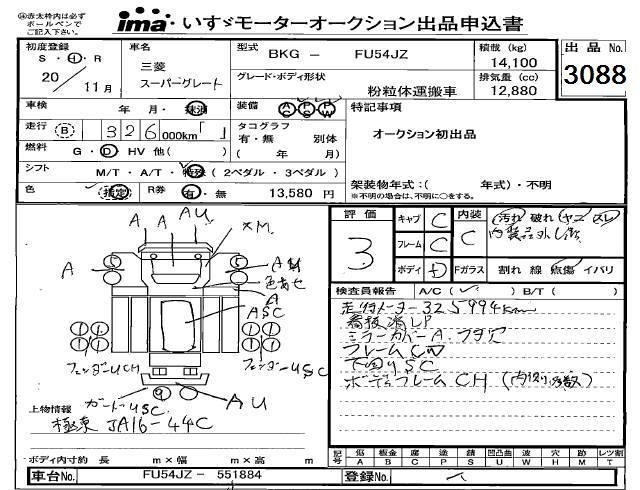 赤太枠内は必ず
ボールペンで
ご記入下さい。
ima いすゞモーターオークション出品申込書
初度登録
S・H・R
20 / 11月
車名
三菱
スーパーグレート
型式
BKG － FU54JZ
グレード・ボディ形状
粉粒体運搬車
積載 (kg)
14,100
排気量 (cc)
12,880
出品 No.
3088
車検 年・月・抹消
装備
特記事項
走行 (B) 326 000km
タコグラフ
有・無 別体
( 年 月)
オークション初出品
燃料 G・D HV 他( )
シフト M/T・A/T・特殊 (2ペダル・3ペダル)
架装物年式：( 年式)・不明
※不明の場合は、不明に○をする。
色 指定 R券 有・無 13,580 円
評価
3
キャブ C
フレーム C
ボディ D
内装
C
汚れ 破れ ヤニ スレ
Fガラス 割れ 線 点傷 イバリ
検査員報告 A/C( ) B/T( )
走行メーター325994km
看板消しP
ミラーカバーA
フレームCW
下回りSC
ボディフレームCH
A
AU
A
色あせ
A
ASC
AU
上物情報
極東 JA16-44C
ボディ内寸約 長 m×幅 m×高 m
記号 低 板金 腐 塗 傷 凹凸曲 W 穴 跡 レツ割
A B C P S U W H M T
車台No. FU54JZ － 551884
登録No.